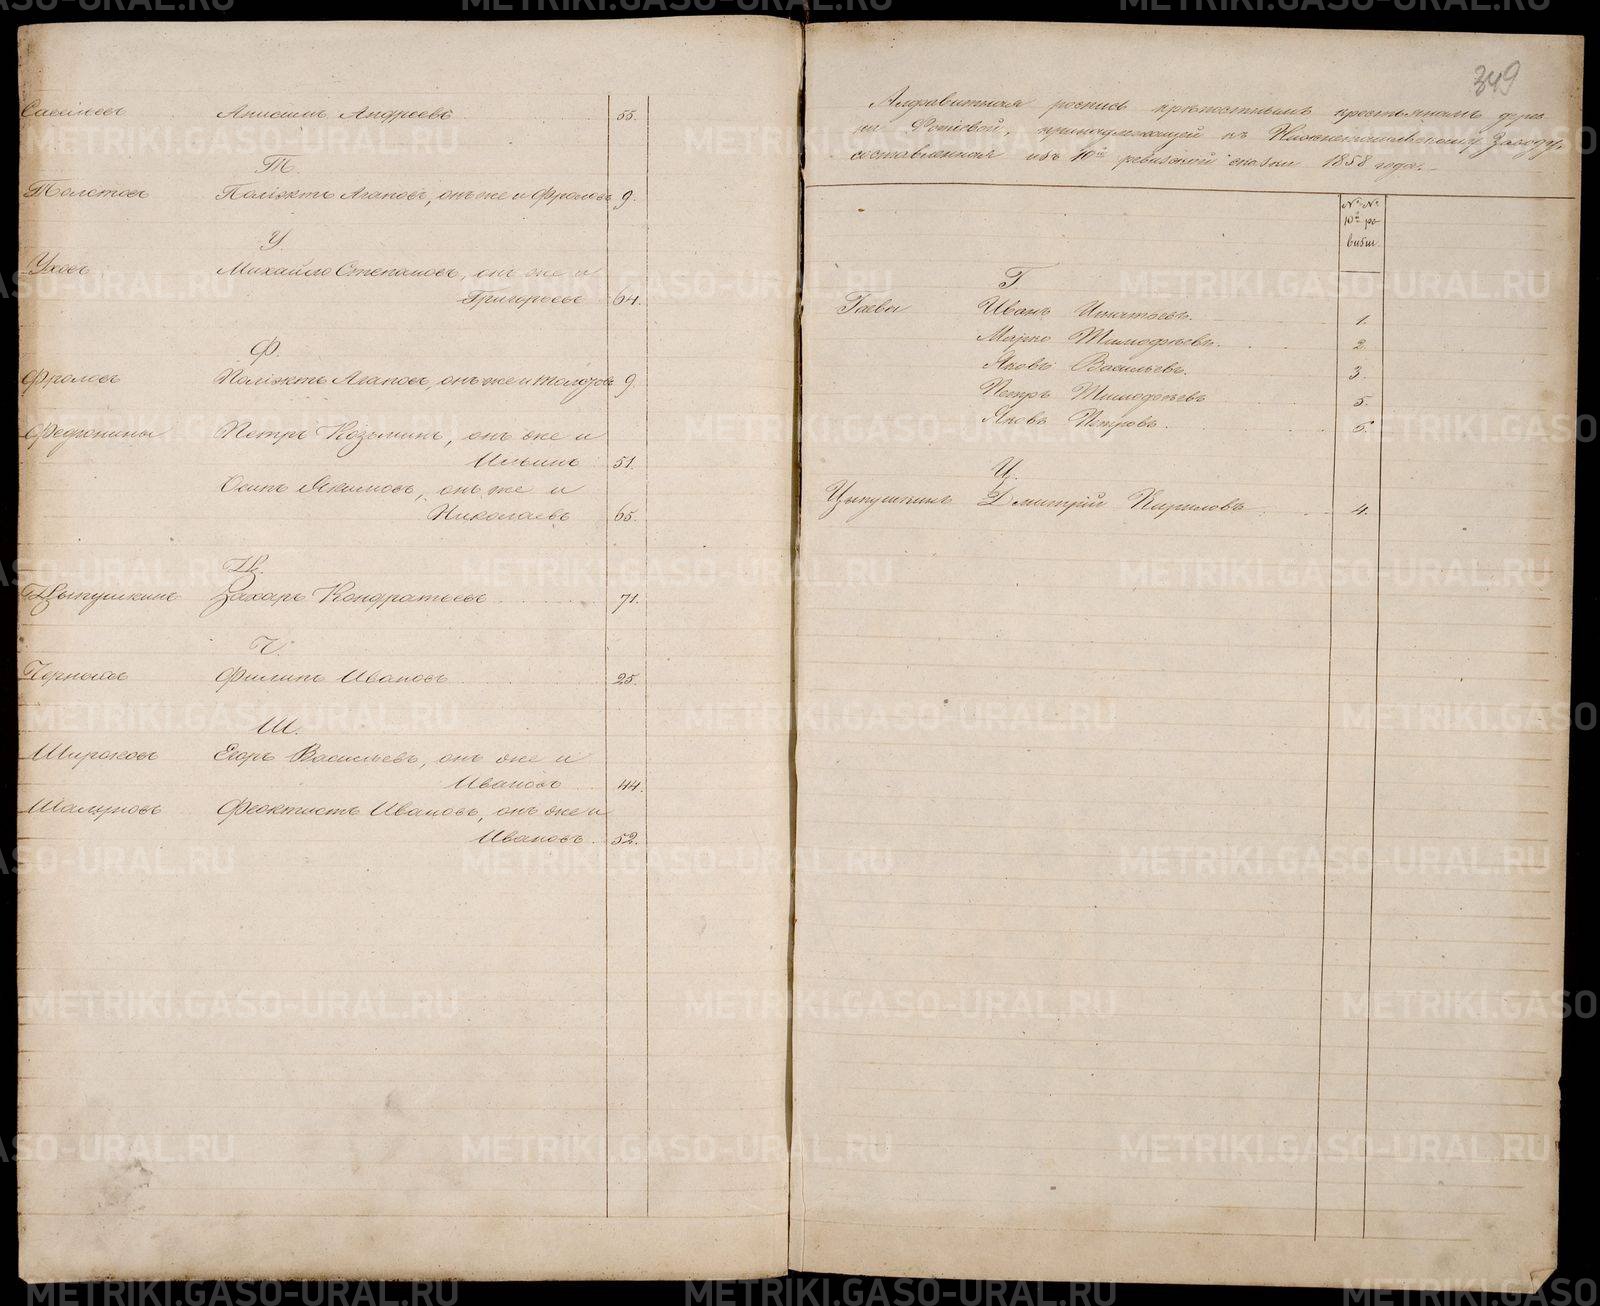 Савельевъ Анисимъ Андреевъ 55.
Т.
Толстовъ Поліэктъ Агаповъ, онъ же и Фроловъ 9.
У.
Уховъ Михайло Степановъ, онъ же и
Григорьевъ 64.
Ф.
Фроловъ Поліэктъ Агаповъ, онъ же и 9.
Федюнины Петръ Козьминъ, онъ же и
Ильинъ 51.
Осипъ Якимовъ, онъ же и
Николаевъ 65.
Ц.
Цыпушкинъ Захаръ Кондратьевъ 71.
Ч.
Филипъ Ивановъ 25.
Ш.
Широковъ Егоръ Васильевъ, онъ же и
Ивановъ 44.
Шалуновъ Феоктистъ Ивановъ, онъ же и
Ивановъ 52.
349
Алфавитная роспись крѣпостнымъ крестьянамъ дерев-
ни принадлежащей къ Нижнетагильскому Заводу,
составленная изъ 10й ревизской сказки 1858 года.
№ №
10й ре-
визіи.
Г
Гаевы Иванъ Игнатьевъ. 1.
Марко Тимофѣевъ. 2.
Яковъ Васильевъ. 3.
Петръ Тимофѣевъ 5.
Яковъ Петровъ. 5.
Ц.
Цыпушкинъ Дмитрій Кириловъ 4.
METRIKI.GASO-URAL.RU